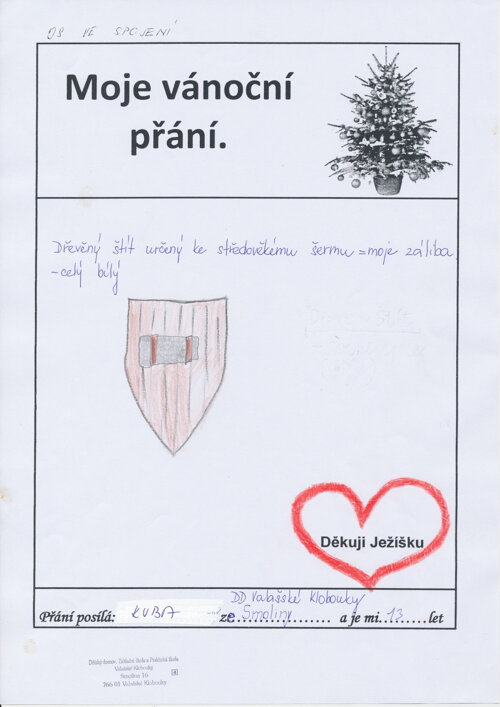 JS VE SPOJENÍ
Moje vánoční
přání.
Dřevěný štít určený ke středověkému šermu = moje záliba
- celý bílý
Děkuji Ježíšku
DD Valašské Klobouky
Přání posílá: KUBA ze Smoliny a je mi 13 let
Dětský domov, Základní škola a Praktická škola
Valašské Klobouky
Smolina 16
766 01 Valašské Klobouky